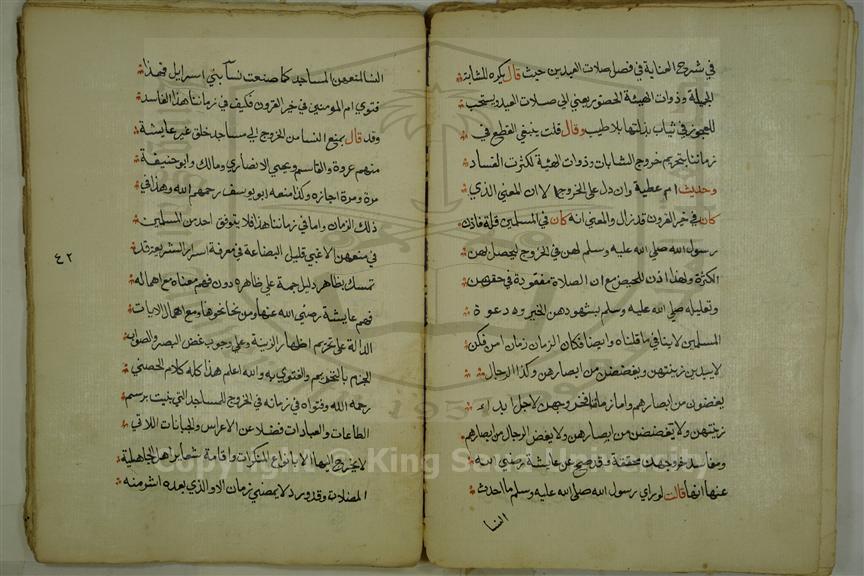 في شروح العناية في فصل صلات العيدين حيث قال يكره للشابة
الجميلة وذوات الهيئة الحضور يعني الي صلات العيد ويستحب
للعجوز في ثياب بذلتها بلا طيب وقال قلت ينبغي القطع في
زماننا بتحريم خروج الشابات وذوات الهيئة لكثرت الفساد
وحديث ام عطية وان دل علي الخروج الا ان المعني الذي
كان في خير القرون قد زال والمعني انه كان في المسلمين قلة فاذن
رسول الله صلي الله عليه وسلم لهن في الخروج ليحصل بهن
الكثرة ولهذا اذن للحيض مع ان الصلاة مفقودة في حقهن
وتعليله صلي الله عليه وسلم بشهودهن الخير ودعوة
المسلمين لا ينافي ما قلناه وايضا فكان الزمان زمان امن فكن
لا يبدين زينتهن ويغضضن من ابصارهن وكذا الرجال
يغضون من ابصارهم واما زماننا فخروجهن لاجل ابداء
زينتهن ولا تغضضن من ابصارهن ولا يغض الرجال من ابصارهم
ومفاسد خروجهن محققة وقد صح عن عايشة رضي الله
عنها انها قالت لو راي رسول الله صلي الله عليه وسلم ما احدث
النسا
النسا لمنعهن المساجد كما صنعت نسآ بني اسرايل فهذا
فتوي ام المومنين في خير القرون فكيف في زماننا هذا الفاسد
وقد قال بمنع النسا من الخروج الي مساجد خلق غير عايشة
منهم عروة والقاسم ويحيي الانصاري ومالك وابو حنيفة
مرة ومرة اجازه وكذا منعه ابو يوسف رحمهم الله وهذا في
ذلك الزمان واما في زماننا هذا فلا يتوقف احد من المسلمين
في منعهن الا غبي قليل البضاعة في معرفة اسرار الشريعة قد
٤٢
تمسك بظاهر دليل حمله علي ظاهره دون فهم معناه مع اهماله
فهم عايشة رضي الله عنها ومن نحا نحوها ومع اهمال الايات
الدالة علي تحريم اظهار الزينة وعلي وجوب غض البصر والصواب
الجزم بالتحريم والفتوي به والله اعلم هذا كله كلام الحصني
رحمه الله وفتواه في زمانه في الخروج المساجد التي بنيت برسم
الطاعات والعبادات فضلا عن الاعراس والجبانات اللاتي
لا يخرج اليها الا بانواع المنكرات واقامة شعاير اهل الجاهلية
المضلات وقد ورد لا يمضي زمان الا والذي بعده اشر منه